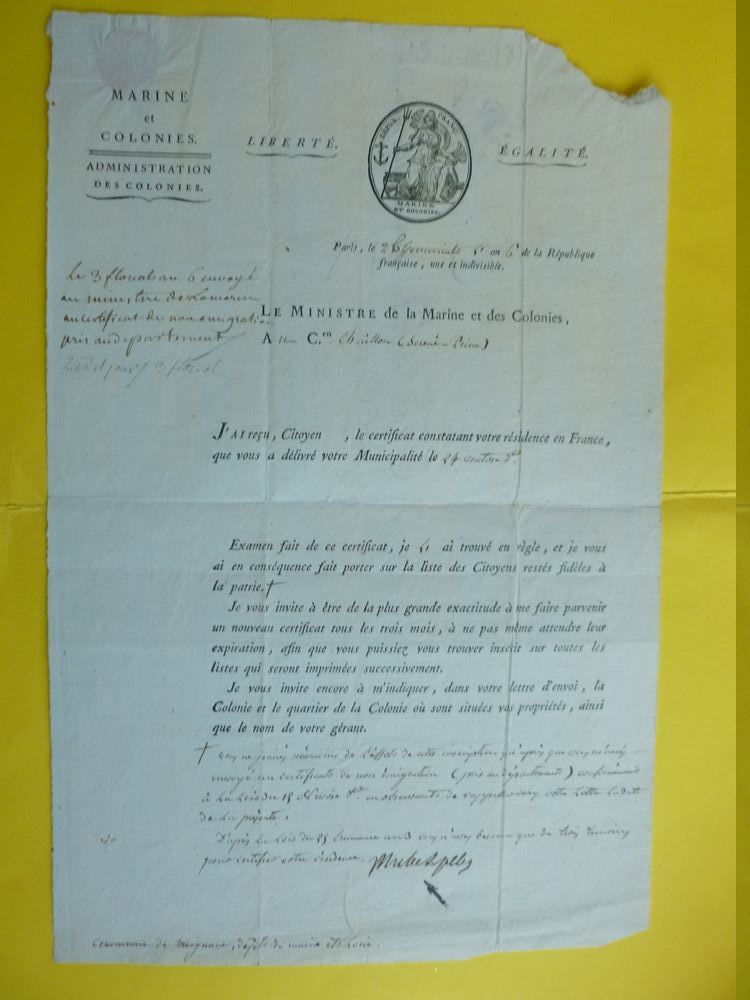 MARINE
et
COLONIES.
ADMINISTRATION
DES COLONIES.
LIBERTÉ.
RÉPUB. FRANC.
MARINE
ET COLONIES.
ÉGALITÉ.
Paris, le 26 Germinal an 6 de la République
française, une et indivisible.
Le 3 floreal an 6 envoyé
au ministre de la marine
un certificat de non emigration
pris au departement
LE MINISTRE de la Marine et des Colonies,
A C.en
J'AI reçu, Citoyen , le certificat constatant votre résidence en France,
que vous a délivré votre Municipalité le 24 ventose d.er
Examen fait de ce certificat, je l' ai trouvé en règle, et je vous
ai en conséquence fait porter sur la liste des Citoyens restés fidèles à
la patrie. †
Je vous invite à être de la plus grande exactitude à me faire parvenir
un nouveau certificat tous les trois mois, à ne pas même attendre leur
expiration, afin que vous puissiez vous trouver inscrit sur toutes les
listes qui seront imprimées successivement.
Je vous invite encore à m'indiquer, dans votre lettre d'envoi, la
Colonie et le quartier de la Colonie où sont situées vos propriétés, ainsi
que le nom de votre gérant.
† vous ne jouirés néanmoins de l'effet de cette inscription qu'après que vous m'aurés
envoyé un certificat de non émigration (pris au département) conformément
à la Loi du en observant de rappeller cette Lettre
de la présente.
D'après la Loi du 25 brumaire an 3 vous n'avez besoin que de trois témoins
pour certifier votre résidence.
Commune de de maine et Loire.